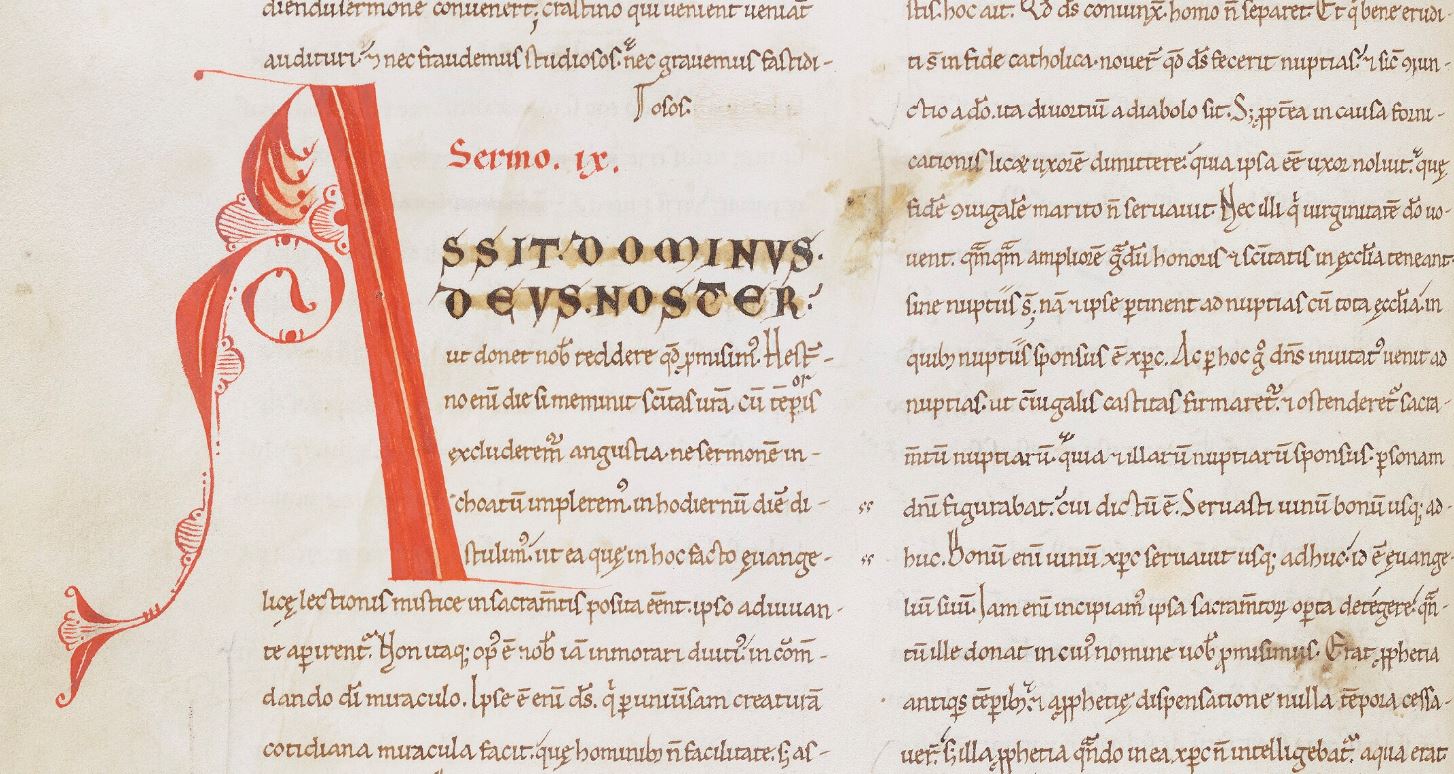 diendi sermone convenert; crastino qui uenient ueniāt
audituri. ⁊ nec fraudemus studiosos. nec grauemus fastidi-
osos.
Sermo. ix.
ASSIT. DOMINVS.
DEVS. NOSTER.
ut donet nob̄ reddere qd̄ ꝓmisim᷒. Hest̄-
no eni die si meminit scitas urā. cū tēporis
excluderem᷒ angustia. ne sermonē in-
choatū impleremᷣ. in hodiernū diē di-
stulim᷒. ut ea quę in hoc facto ęuange-
licę lectionis mistice in sacram̄tis posita eēnt. ipso adiuuan-
te apirent᷒. Non itaq; op᷒ ē nob̄ iā inmorari diuti᷒. in cōm-
dando di miraculo. Ipse ē eni ds̄. q̇ ꝑ uniuīsam creaturā
cotidiana miracula facit. quę hominib; n̄ facilitate. s; as-
stis. hoc ait. Qd̄ ds̄ coniunx̄. homo n̄ separet. Et q̇ bene erudi-
ti st̄ in fide catholica. nouer̄ qd̄ ds̄ fecerit nuptias. ⁊ sic̄ ꝯiun-
ctio a do. ita diuortiū a diabolo sit. S; ꝓptea in causa forni-
cationis licꝫ uxorē dimittere. quia ipsa eē uxor noluit. quę
fidē ꝯiugalē marito n̄ seruauit. Nec illi q̇ uirginitatē do uo-
uent. qm̄qm̄ ampliorē gdū honoris ⁊ scitatis in ęccl̄ia teneant
sine nuptiis s̄. nā ⁊ ipse ꝑtinent ad nuptias cū tota ęccl̄ia. in
quib; nuptiis sponsus ē xp̄c. Ac ꝑ hoc g dn̄s inuitat᷒ uenit ad
nuptias. ut c̄iugalis castitas firmaret᷒. ⁊ ostenderet᷒ sacra-
m̄tū nuptiarū. quia ⁊ illarū nuptiarū sponsus. ꝑsonam
dn̄i figurabat. cui dictū ē. Seruasti uinū bonū usq; ad-
huc. Bonū eni uinū xp̄c seruauit usq; adhuc. id ē ęuange-
liū suū. Iam eni incipiam᷒ ipsa sacram̄toꝝ opta detegere. qn̄-
tū ille donat in cui᷒ nomine uob̄ ꝓmisimus. Erat ꝓphetia
antiq̇s tēporib;. ⁊ a ꝓphetię dispensatione nulla tēpora cessa-
uer̄. s; illa ꝓphetia qn̄do in ea xp̄c n̄ intelligebat᷒. aqua erat